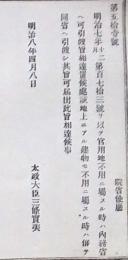 第五拾壱號
院省使廳
明治七年十二月第百七拾三號ヲ以テ官用地不用ニ屬スル時ハ内務省
ヘ可引渡旨相達置候處該地上ニアル建物モ不用ニ屬スル時ハ併テ
同省ヘ引渡シ其旨可屆出此旨相達候事
明治八年四月八日
太政大臣三條實美